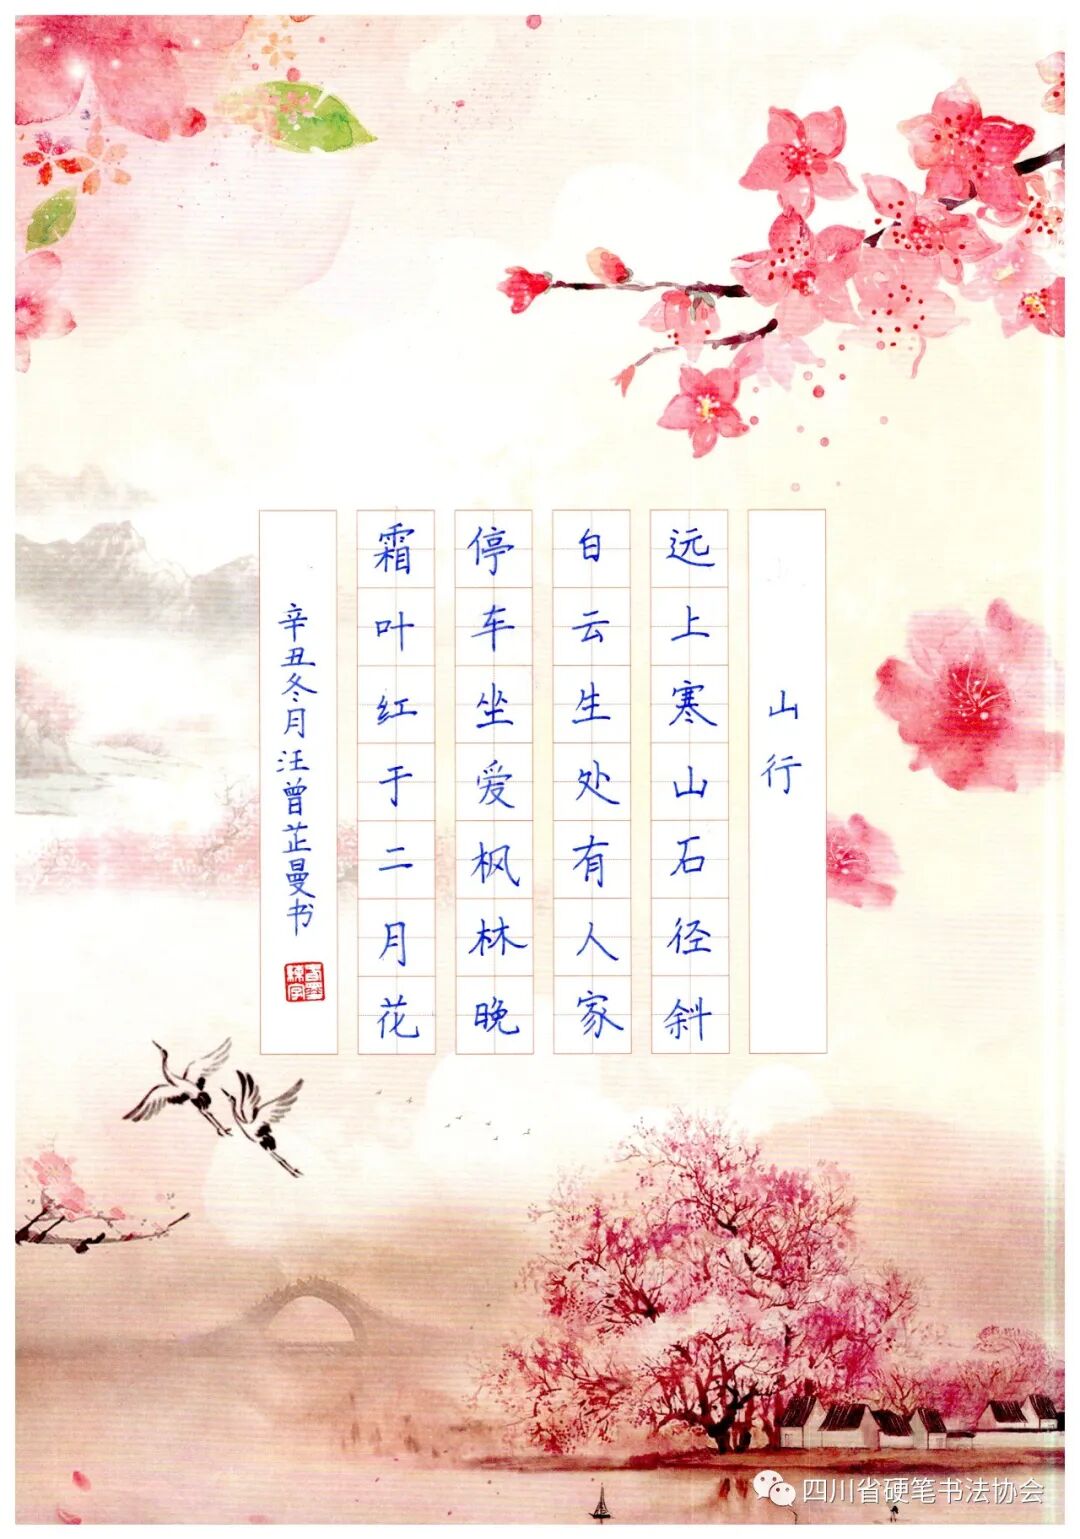 山行
远上寒山石径斜
白云生处有人家
停车坐爱枫林晚
霜叶红于二月花
辛丑冬月汪曾芷曼书
四川省硬笔书法协会